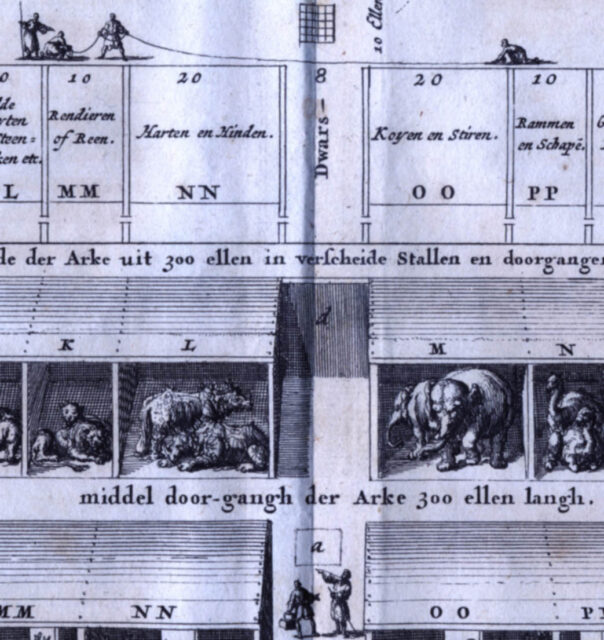 10 Ellen
0 10 20 8 20 10
Rendieren
of Reen.
Harten en Hinden.
Dwars-
Koyen en Stiren.
Rammen
en Schapē.
L MM NN OO PP
de der Arke uit 300 ellen in verscheide Stallen en doorgangen
d
K L M N
middel door-gangh der Arke 300 ellen langh.
a
MM NN OO P